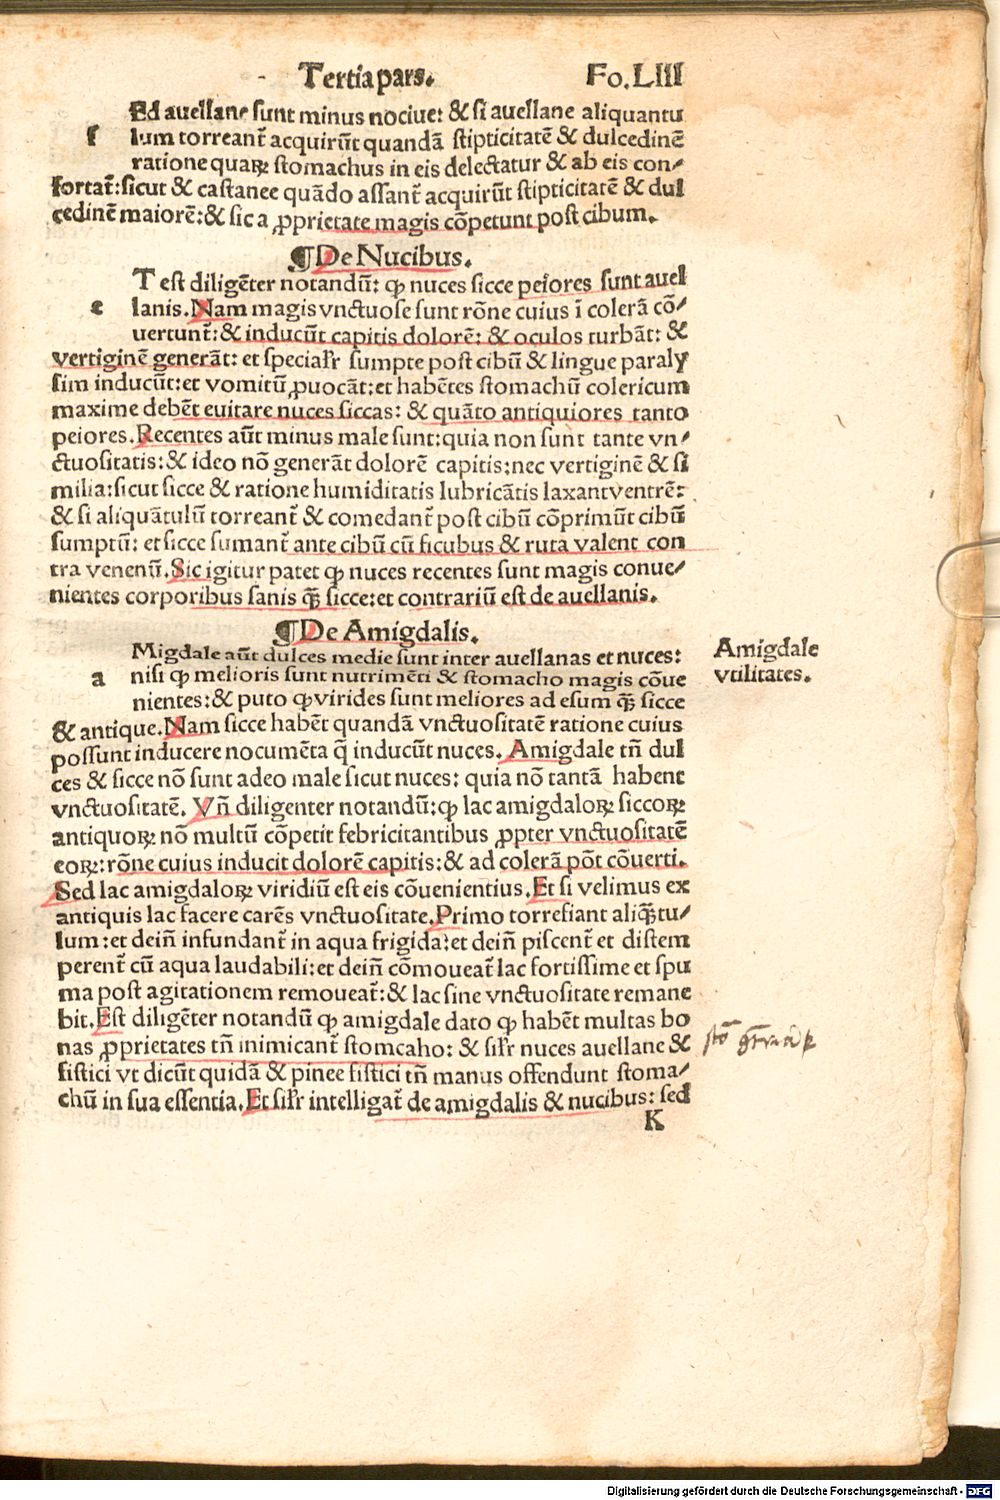 Tertia pars. Fo. LIII
Ed auellane sunt minus nociue: & si auellane aliquantu
s lum torreant᷑ acquirūt quandā stipticitatē & dulcedinē
ratione quaꝝ stomachus in eis delectatur & ab eis con⸗
fortat᷑: sicut & castanee quādo assant᷑ acquirūt stipticitatē & dul
cedinē maiorē: & sic a ꝓprietate magis cōpetunt post cibum.
¶De Nucibus.
T est diligēter notandū: ꝙ nuces sicce peiores sunt auel
e lanis. Nam magis vnctuose sunt rōne cuius ī colerā cō⸗
uertunt᷑: & inducūt capitis dolorē: & oculos turbāt: &
vertiginē generāt: et specialr̄ sumpte post cibū & lingue paraly
sim inducūt: et vomitū ꝓuocāt: et habētes stomachū colericum
maxime debēt euitare nuces siccas: & quāto antiquiores tanto
peiores. Recentes aūt minus male sunt: quia non sunt tante vn⸗
ctuositatis: & ideo nō generāt dolorē capitis: nec vertiginē & si
milia: sicut sicce & ratione humiditatis lubricātis laxant ventrē:
& si aliquātulū torreant᷑ & comedant᷑ post cibū cōprimūt cibū
sumptū: et sicce sumant᷑ ante cibū cū ficubus & ruta valent con
tra venenū. Sic igitur patet ꝙ nuces recentes sunt magis conue⸗
nientes corporibus sanis q̄ꝫ sicce: et contrariū est de auellanis.
¶De Amigdalis.
Migdale aūt dulces medie sunt inter auellanas et nuces:
a nisi ꝙ melioris sunt nutrimēti & stomacho magis cōue
nientes: & puto ꝙ virides sunt meliores ad esum q̄ꝫ sicce
& antique. Nam sicce habēt quandā vnctuositatē ratione cuius
possunt inducere nocumēta q̄ inducūt nuces. Amigdale tn̄ dul
ces & sicce nō sunt adeo male sicut nuces: quia nō tantā habent
vnctuositatē. Vn̄ diligenter notandū: ꝙ lac amigdaloꝝ siccoꝝ
antiquoꝝ nō multū cōpetit febricitantibus ꝓpter vnctuositatē
eoꝝ: rōne cuius inducit dolorē capitis: & ad colerā pōt cōuerti.
Sed lac amigdaloꝝ viridiū est eis cōuenientius. Et si velimus ex
antiquis lac facere carēs vnctuositate. Primo torrefiant aliq̄ꝫtu⸗
lum: et dein̄ infundant᷑ in aqua frigida: et dein̄ piscent᷑ et distem
perent᷑ cū aqua laudabili: et dein̄ cōmoueat᷑ lac fortissime et spu
ma post agitationem remoueat᷑: & lac sine vnctuositate remane
bit. Est diligēter notandū ꝙ amigdale dato ꝙ habēt multas bo
nas ꝓprietates tn̄ inimicant᷑ stomcaho: & silr̄ nuces auellane &
fistici vt dicūt quidā & pinee fistici tn̄ manus offendunt stoma⸗
chū in sua essentia. Et silr̄ intelligat᷑ de amigdalis & nucibus: sed
K
Amigdale
vtilitates.
Digitalisierung gefördert durch die Deutsche Forschungsgemeinschaft - DFG